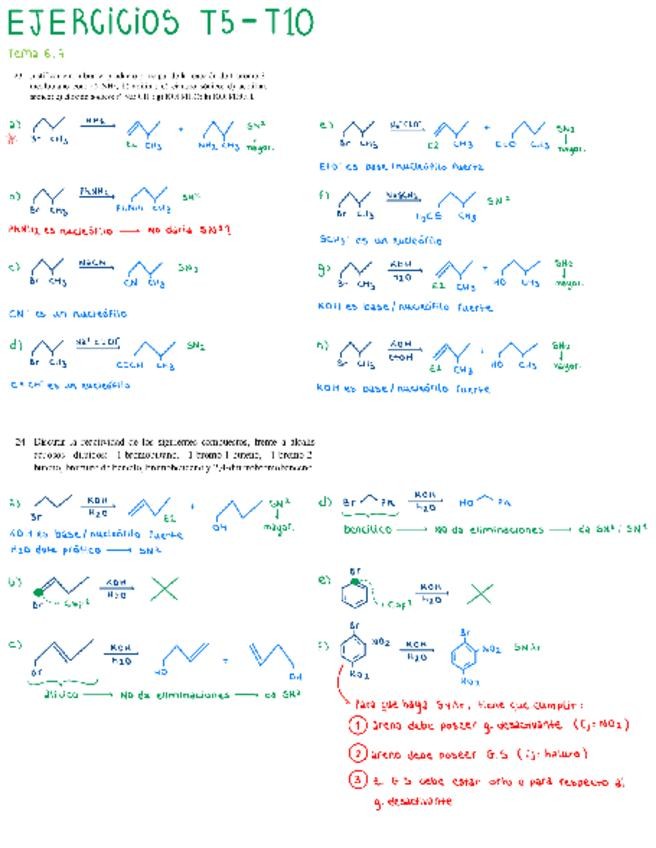 EJERCICIOS T5-T10
Tema 6,7
a) NH₃ + SN2
Br CH₃ E2 CH₃ NH₂ CH₃ mayor.
b) PhNH₂
Br CH₃ CH₃
PhNH₂ es nucleófilo → No daría SN1?
c) NaCN SN2
Br CH₃ CN CH₃
CN⁻ es un nucleófilo
d) SN2
Br CH₃ CH₃
es un nucleófilo
e) + SN2
Br CH₃ E2 CH₃ EtO CH₃ mayor.
EtO⁻ es base/nucleófilo fuerte
f) NaSCH₃ SN2
Br CH₃ CH₃
SCH₃⁻ es un nucleófilo
g) KOH H₂O + SN2
Br CH₃ CH₃ HO CH₃ mayor.
KOH es base/nucleófilo fuerte
h) KOH EtOH + SN2
Br CH₃ CH₃ HO CH₃ mayor.
KOH es base/nucleófilo fuerte
24 Discutir la reactividad de los siguientes compuestos, frente a álcalis
acuosos diluidos: 1-bromobutano, 1-bromo-1-buteno, 1-bromo-2-
buteno, bromuro de bencilo, bromobenceno y 2,4-dinitrobromobenceno
a) KOH H₂O + SN2
Br OH mayor.
KOH es base/nucleófilo fuerte
H₂O dte prótico → SN2
b) KOH H₂O
Br Csp²
c) KOH H₂O +
Br HO OH
alílico → NO da eliminaciones → da SN2
d) Br Ph KOH H₂O HO Ph
bencílico → NO da eliminaciones → da SN2/SN1
e) Br KOH H₂O
Csp²
f) Br NO₂ KOH H₂O Br NO₂ SNAr
NO₂ NO₂
Para que haya SNAr, tiene que cumplir:
① areno debe poseer g. desactivante (Ej: NO₂)
② areno debe poseer G.S (ej: haluro)
③ El G.S debe estar orto o para respecto al
g. desactivante